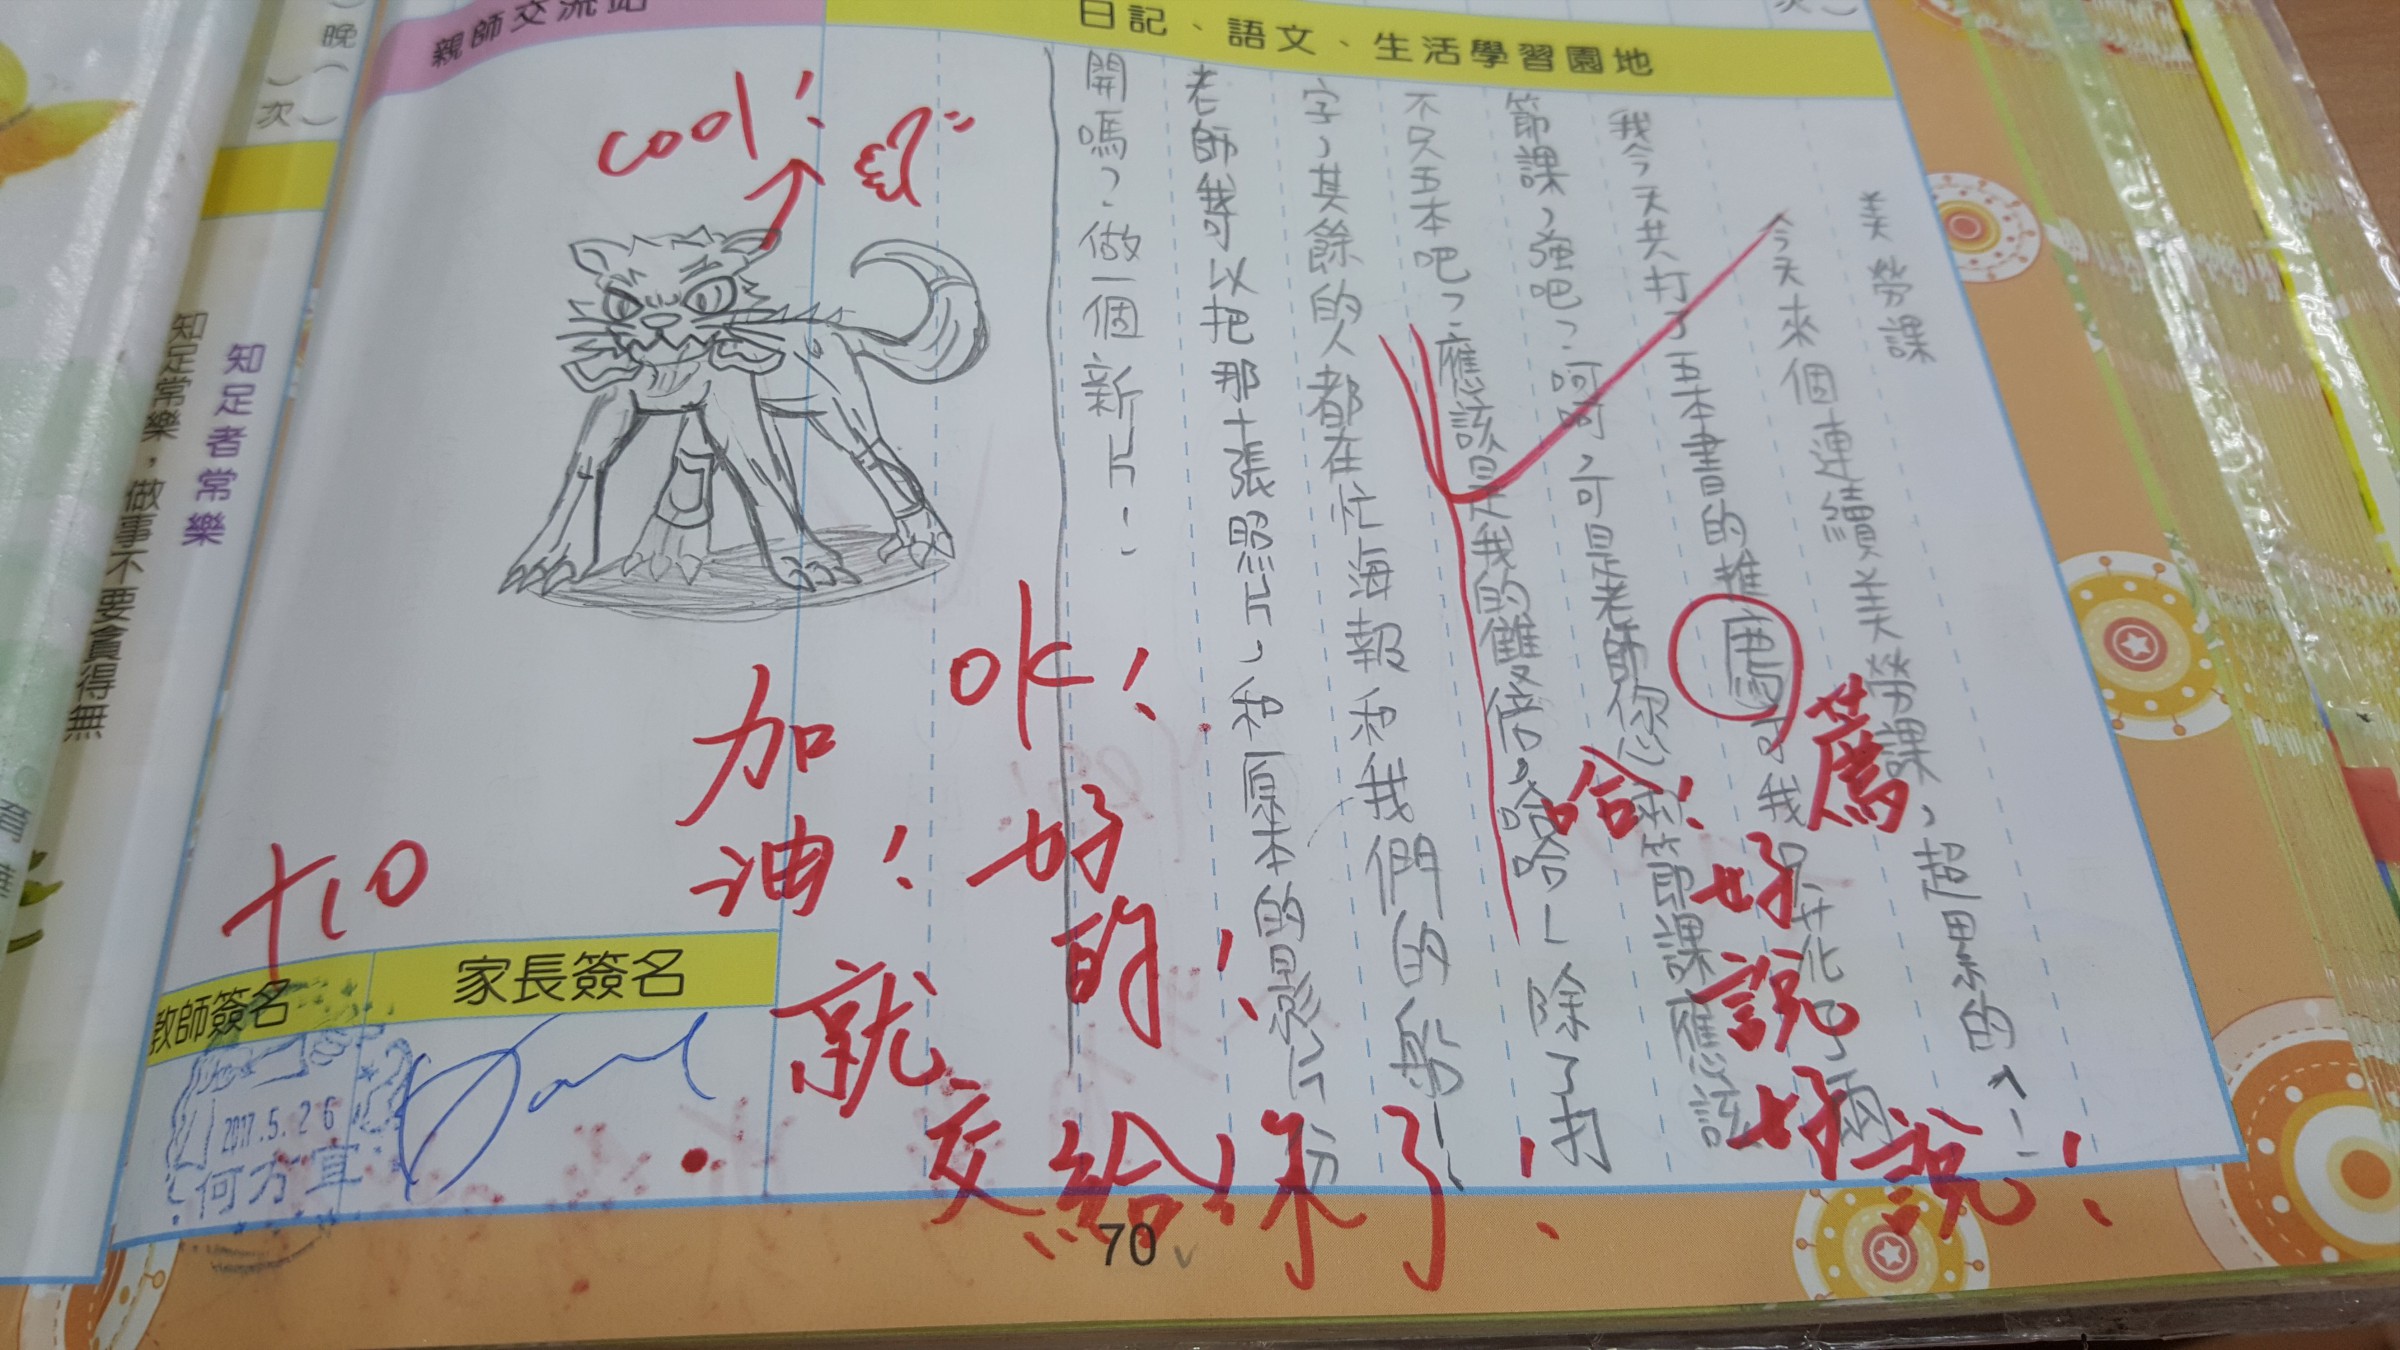 親師交流站
日記、語文、生活學習園地
美勞課
今天來個連續美勞課,超累的、!
我今天共打了五本書的推薦可我是
節課,強吧?呵呵,可是老師你心
節課應該
不只五本吧?應該是我的雙倍,哈哈!除了打
字,其餘的人都在忙海報和我們的船!
老師我可以把那十張照片,和原本的影片分
開嗎?做一個新片!
cool!
哈!
薦
好說好說!
OK!
好的!
加油!
就交給你了!
+10
教師簽名
家長簽名
2017.5.26
何方宜
70
晚
次
知足者常樂
知足常樂,做事不要貪得無